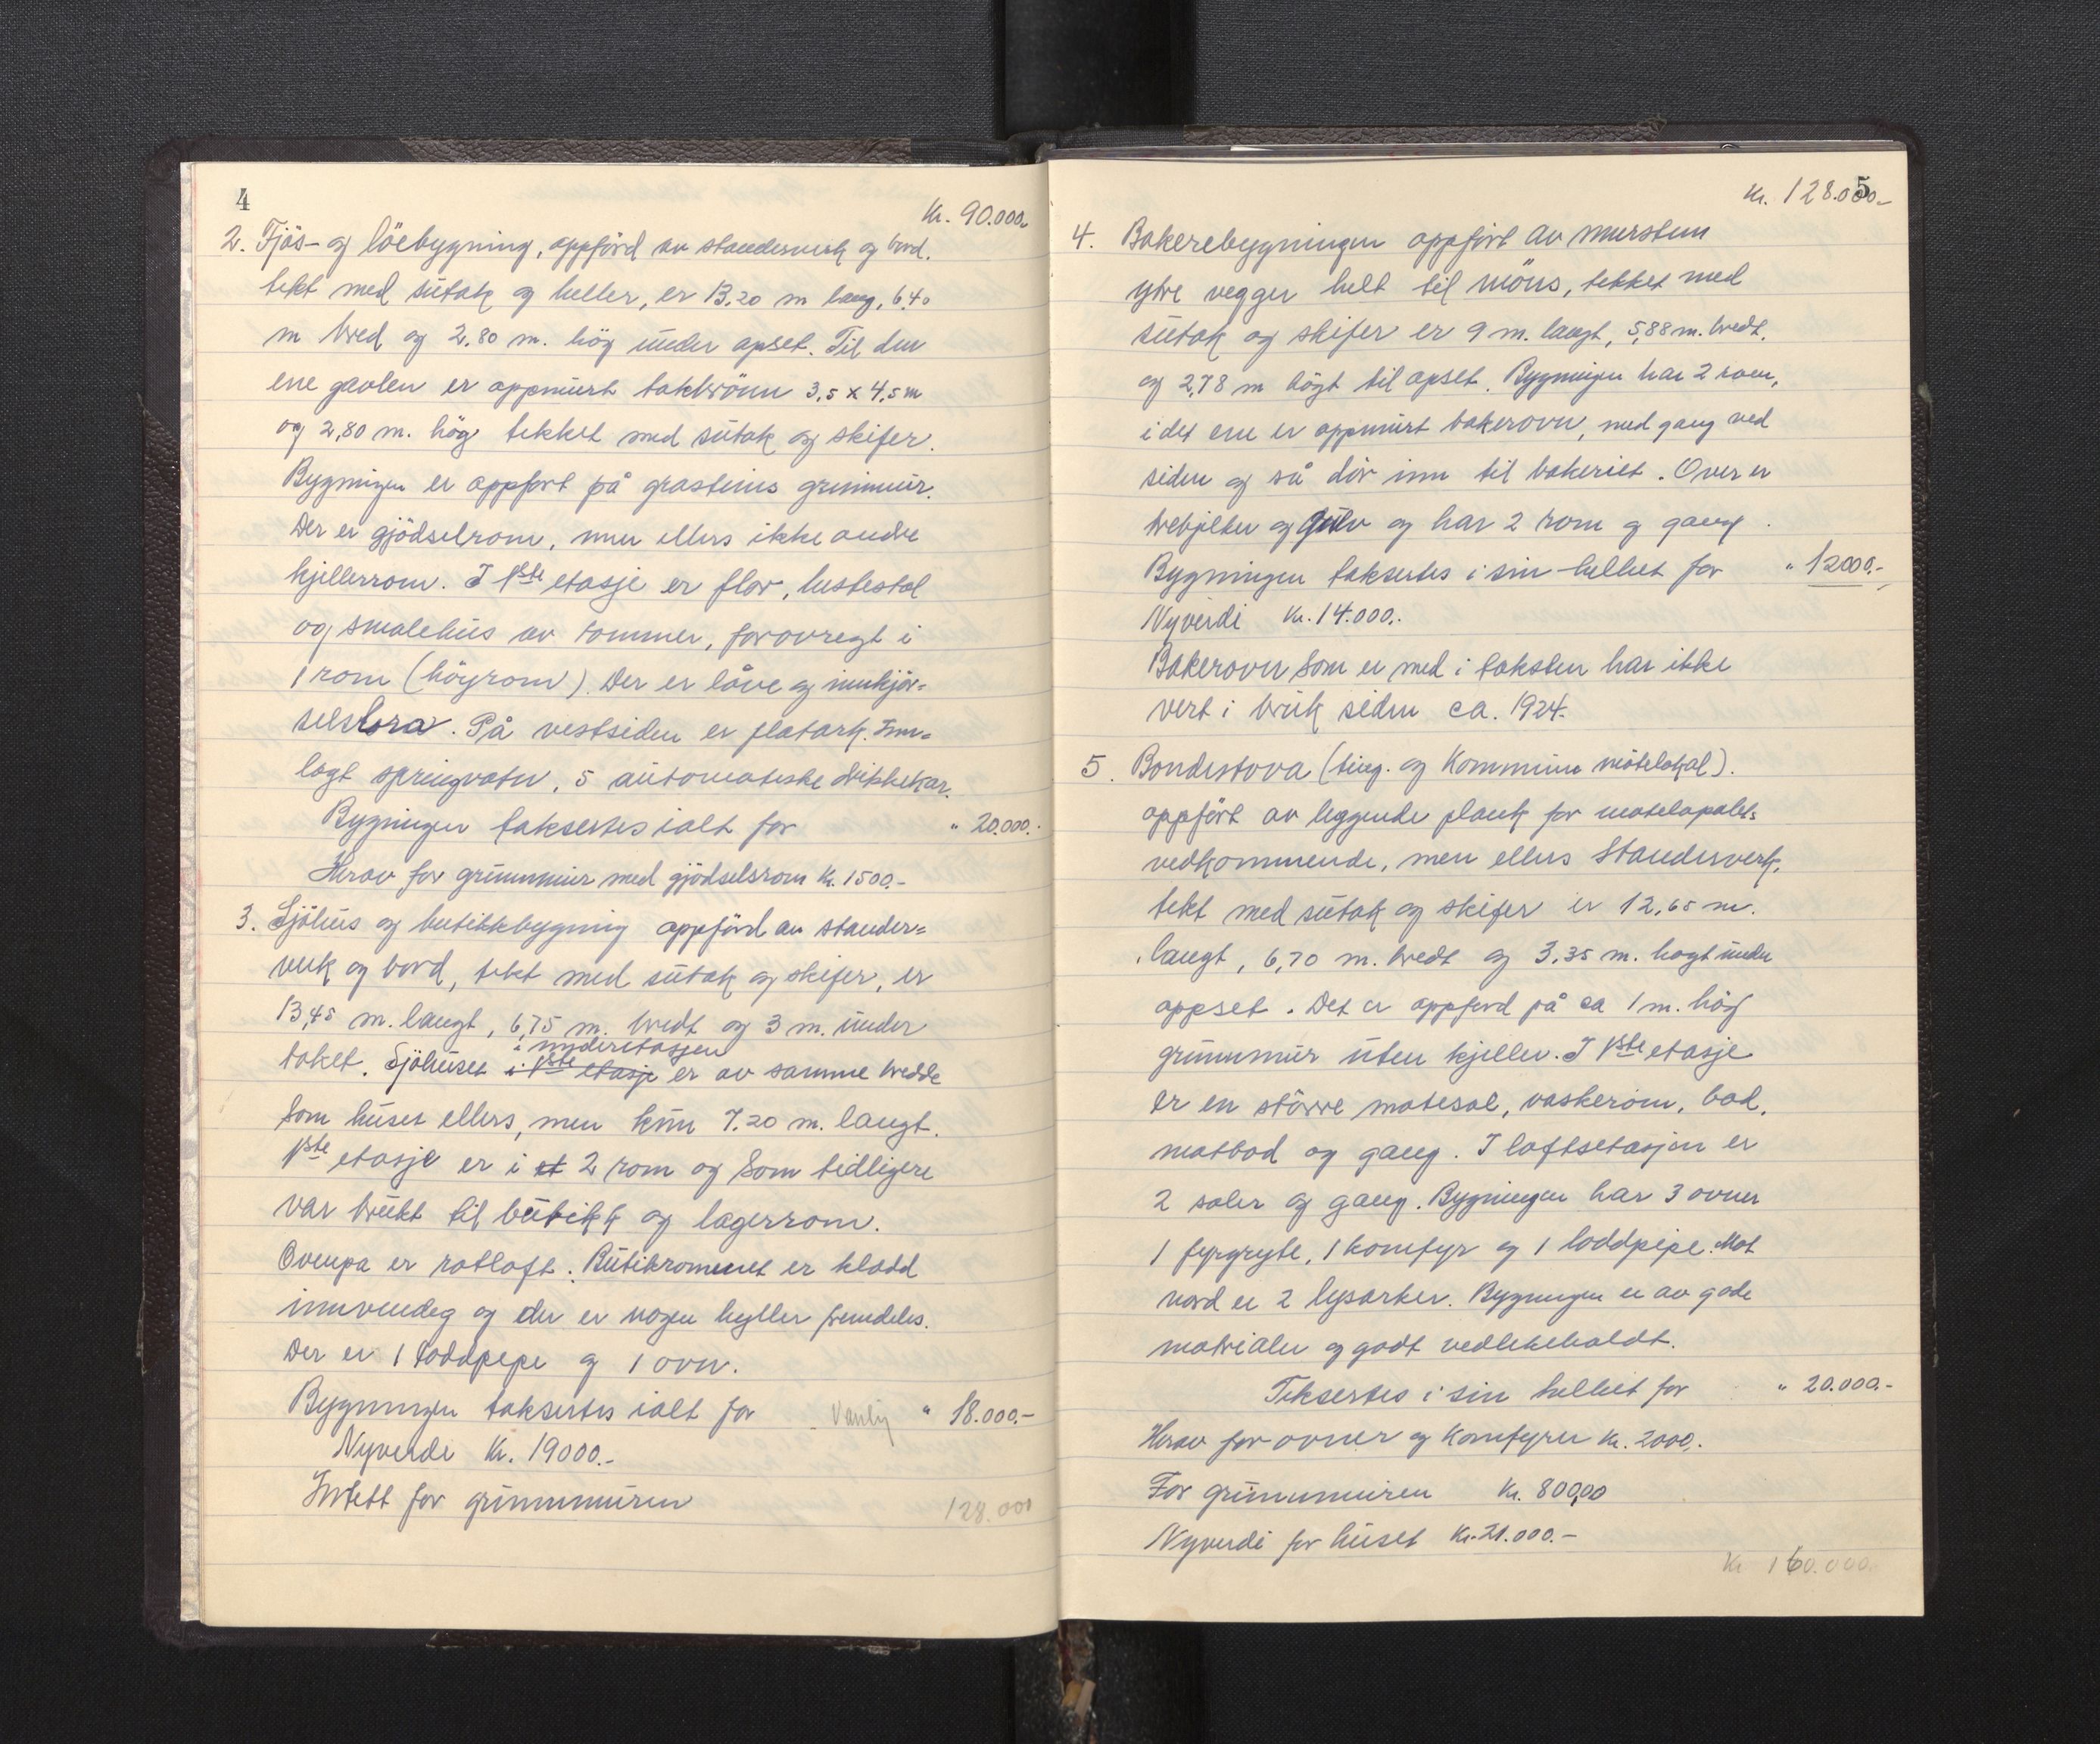 4
Kr. 90.000.-
2. Fjös- og löebygning, oppförd av standerverk og bord.
tekt med sutak og heller, er 13,20 m lang, 6,40
m bred og 2,80 m. hög under opset. Til den
ene gavlen er oppmurt 3,5 x 4,5 m
og 2,80 m. hög tekket med sutak og skifer.
Bygningen er oppfort på grasteins grunnmur.
Der er gjödselrom, men ellers ikke andre
kjellerrom. I 1ste etasje er flor, hestestal
og smalehus av tommer, forovregt i
1 rom (höyrom). Der er låve og innkjör=
sels. På vestsiden er flatark. Inn=
lagt springvatn, 5 automatiske drikkekar.
Bygningen taksertes ialt for " 20.000.-
Herav for grunnmur med gjödselsrom Kr. 1500.-
3. Sjöhus og butikkbygning oppförd av stander=
verk og bord, tekt med sutak og skifer, er
13,45 m. langt, 6,75 m. bredt og 3 m. under
i underetasjen
taket. Sjöhuset i 1ste etasje er av samme bredde
som huset ellers, men kun 7.20 m. langt.
1ste etasje er i et 2 rom og som tidligere
var brukt til butikk og lagerrom.
Ovenpa er rotloft. Butikromenet er kladd
innvendeg og der er nogen hyller fremdeles.
Der er 1 loddpipe og 1 ovn.
Bygningen taksertes ialt for - Vanlig " 18.000.-
Nyverdi Kr. 19000.-
Intett for grunnmuren
128.000
5
Kr. 128.000.-
4. Bakerebygningen oppfört av murstein
ytre vegger helt til möns, tekket med
sutak og skifer er 9 m. langt, 5,88 m. bredt,
og 2,78 m högt til opset. Bygningen har 2 rom,
i det ene er oppmurt bakerovn, med gang ved
siden og så dör inn til bakeriet. Over er
trebjelker og gulv og har 2 rom og gang.
Bygningen taksertes i sin helhet for " 12000.-
Nyverdi Kr. 14.000.-
Bakerovn som er med i taksten har ikke
vert i bruk siden ca. 1924.
5. Bondestova (ting- og Kommune mötelokal).
oppfört av leggende plank for motelopalets
vedkommende, men ellers Standerverk,
tekt med sutak og skifer er 12,65 m.
langt, 6,70 m. bredt og 3,35 m. hogt under
oppset. Det er oppford på ca 1 m. hög
grunnmur uten kjeller. I 1ste etasje
er en större motesal, vaskerom, bad,
matbod og gang. I loftsetasjen er
2 saler og gang. Bygningen har 3 ovner
1 fyrgryte, 1 komfyr og 1 loddpipe. Mot
nord er 2 lysarker. Bygningen er av gode
matrialer og godt vedlikeholdt.
Teksertes i sin helhet for " 20.000.-
Herav for ovner og Komfyren Kr. 2000.-
For grunnmuren Kr. 800,00
Nyverdi for huset Kr. 21.000.-
Kr 160.000.